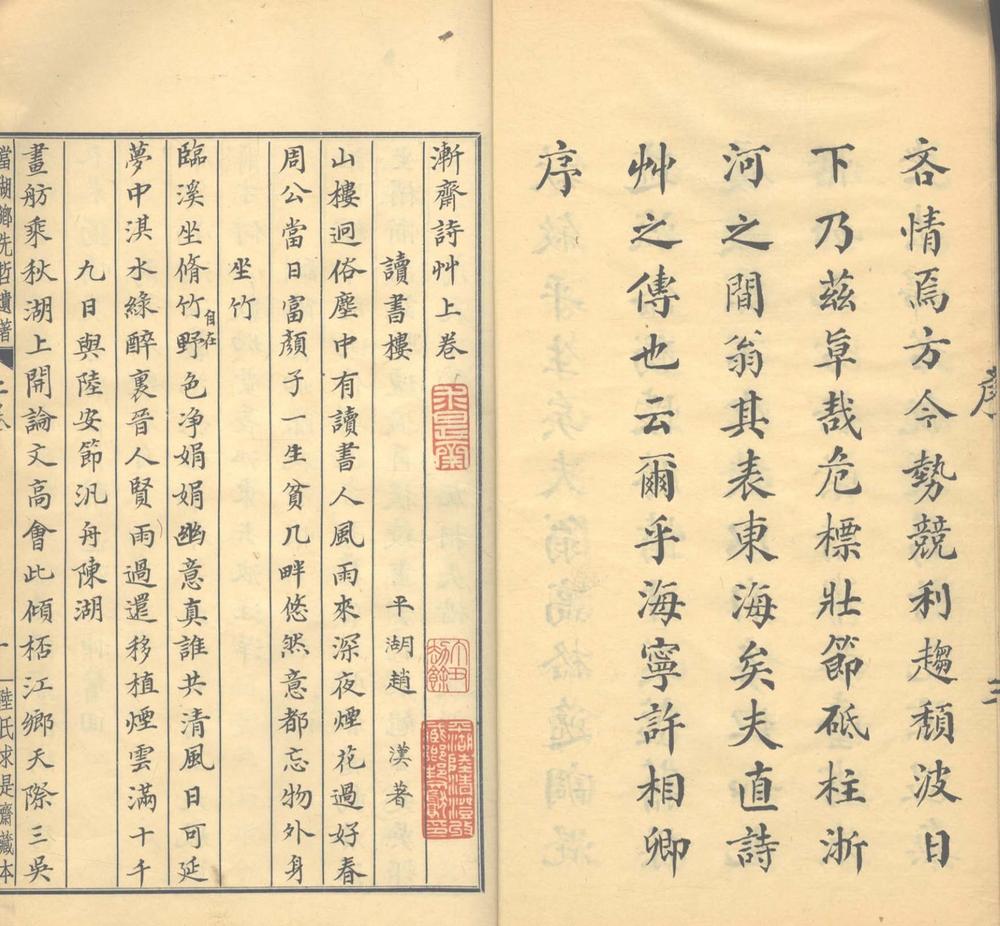 吝情焉方今勢競利趨頹波日
下乃茲卓哉危標壯節砥柱浙
河之間翁其表東海矣夫直詩
艸之傳也云爾乎海寧許相卿
序
序
三
漸齋詩艸上卷
求是齋
讀書樓 平湖趙漢著
劫餘
平湖陸清澄
山樓迥俗塵中有讀書人風雨來深夜煙花過好春
周公當日富顏子一生貧几畔悠然意都忘物外身
坐竹
臨溪坐脩竹野色净娟娟幽意真誰共清風日可延
自在
夢中淇水綠醉裏晉人賢雨過還移植煙雲滿十千
九日與陸安節汎舟陳湖
畫舫乘秋湖上開論文高會此傾桮江鄉天際三吳
當湖鄉先哲遺著
上卷
一
陸氏求是齋藏本